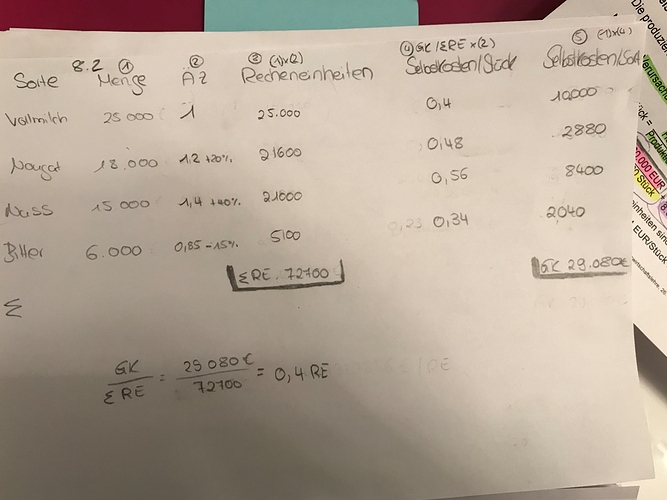 8.2 ① ② ③ (1)x(2) ④ GK/ΣRE x(2) ⑤ (1)x(4)
Sorte Menge ÄZ Recheneinheiten Selbstkosten/Stück Selbstkosten/Sort
Vollmilch 25 000 1 25.000 0,4 10,000
Nougat 18.000 1,2 +20% 21600 0,48 2880
Nuss 15 000 1,4 +40% 21000 0,56 8400
Bitter 6.000 0,85 -15% 5100 0,34 2040
Σ ΣRE. 72700 GK 29.080€
GK / ΣRE = 29 080 € / 72700 = 0,4 RE
Die produzi
verursach
Stück =
EUR
Stück
einheiten sin
EUR/Stück